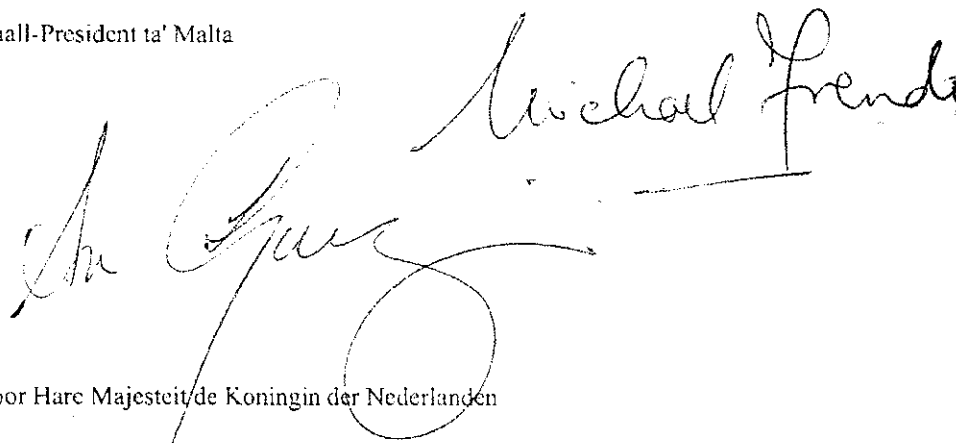 all-President ta' Malta
Michael Frendo
oor Hare Majesteit de Koningin der Nederlanden